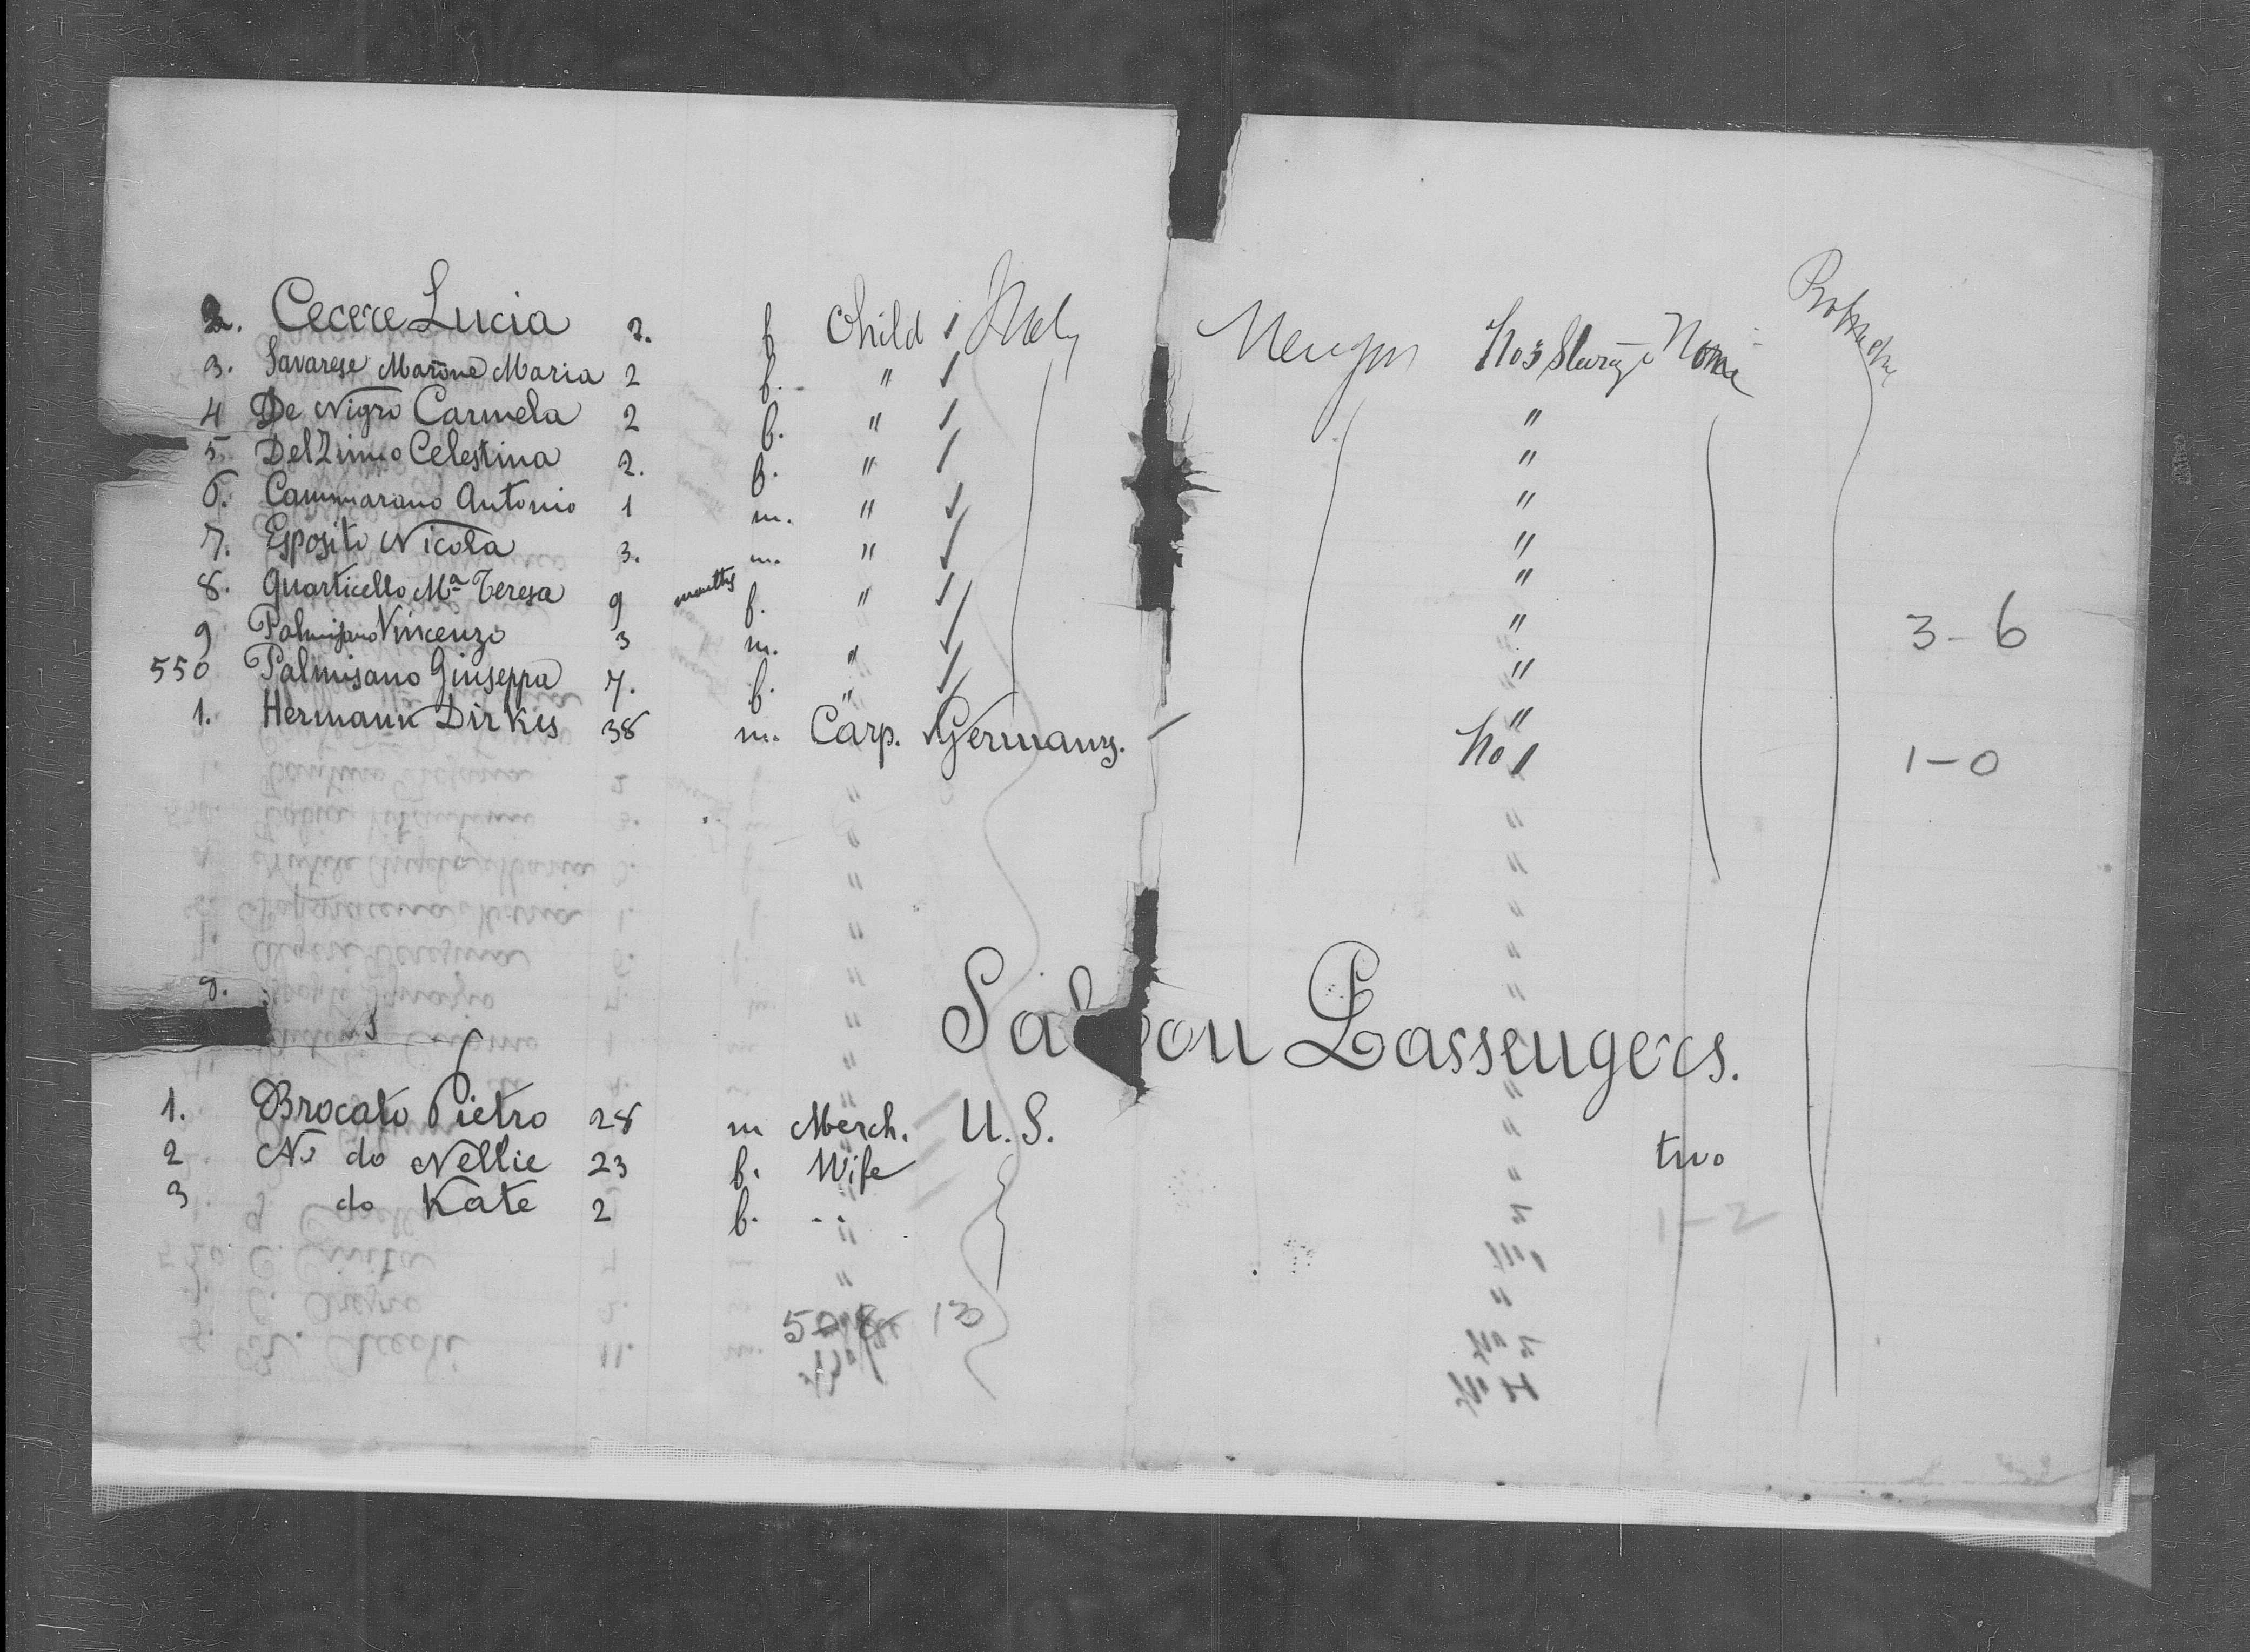 2. Cecere Lucia 2. f Child Italy No 3 Steerage None
3. Savarese Marone Maria 2 f. " "
4 De Nigro Carmela 2 f. " "
5 Del Zinno Celestina 2. f. " "
6. Cammarano Antonio 1 m. " "
7. Esposito Nicola 3. m. " "
8. Quarticello Mª Teresa 9 months f. " "
9 Palmisano Vincenzo 3 m. " " 3-6
550 Palmisano Giuseppa 7. f. " "
1. Hermann Dirkes 38 m. Carp. Germany. No 1 1-0
Saloon Passengers.
1. Brocato Pietro 28 m Merch. U.S.
2 do Nellie 23 f. Wife two
3 do Kate 2 f. 1-2
13